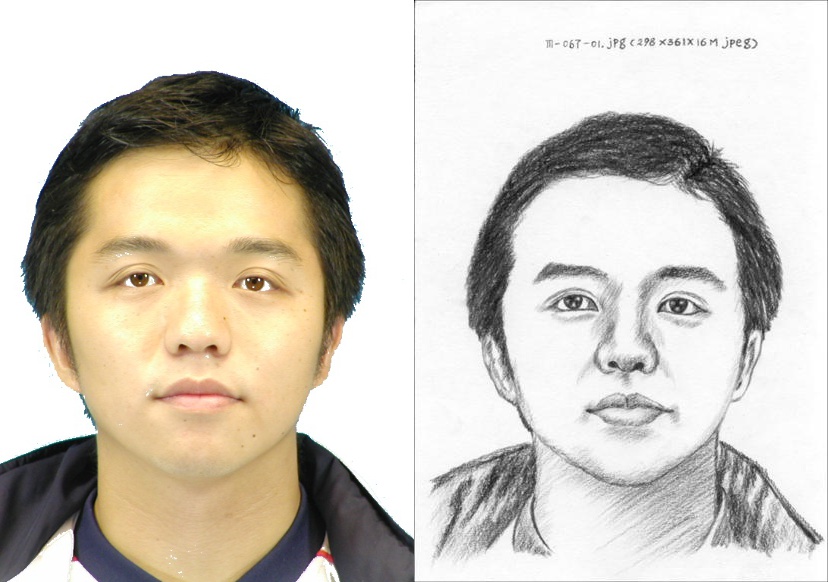 m-067-01.jpg (298×361×16M jpeg)